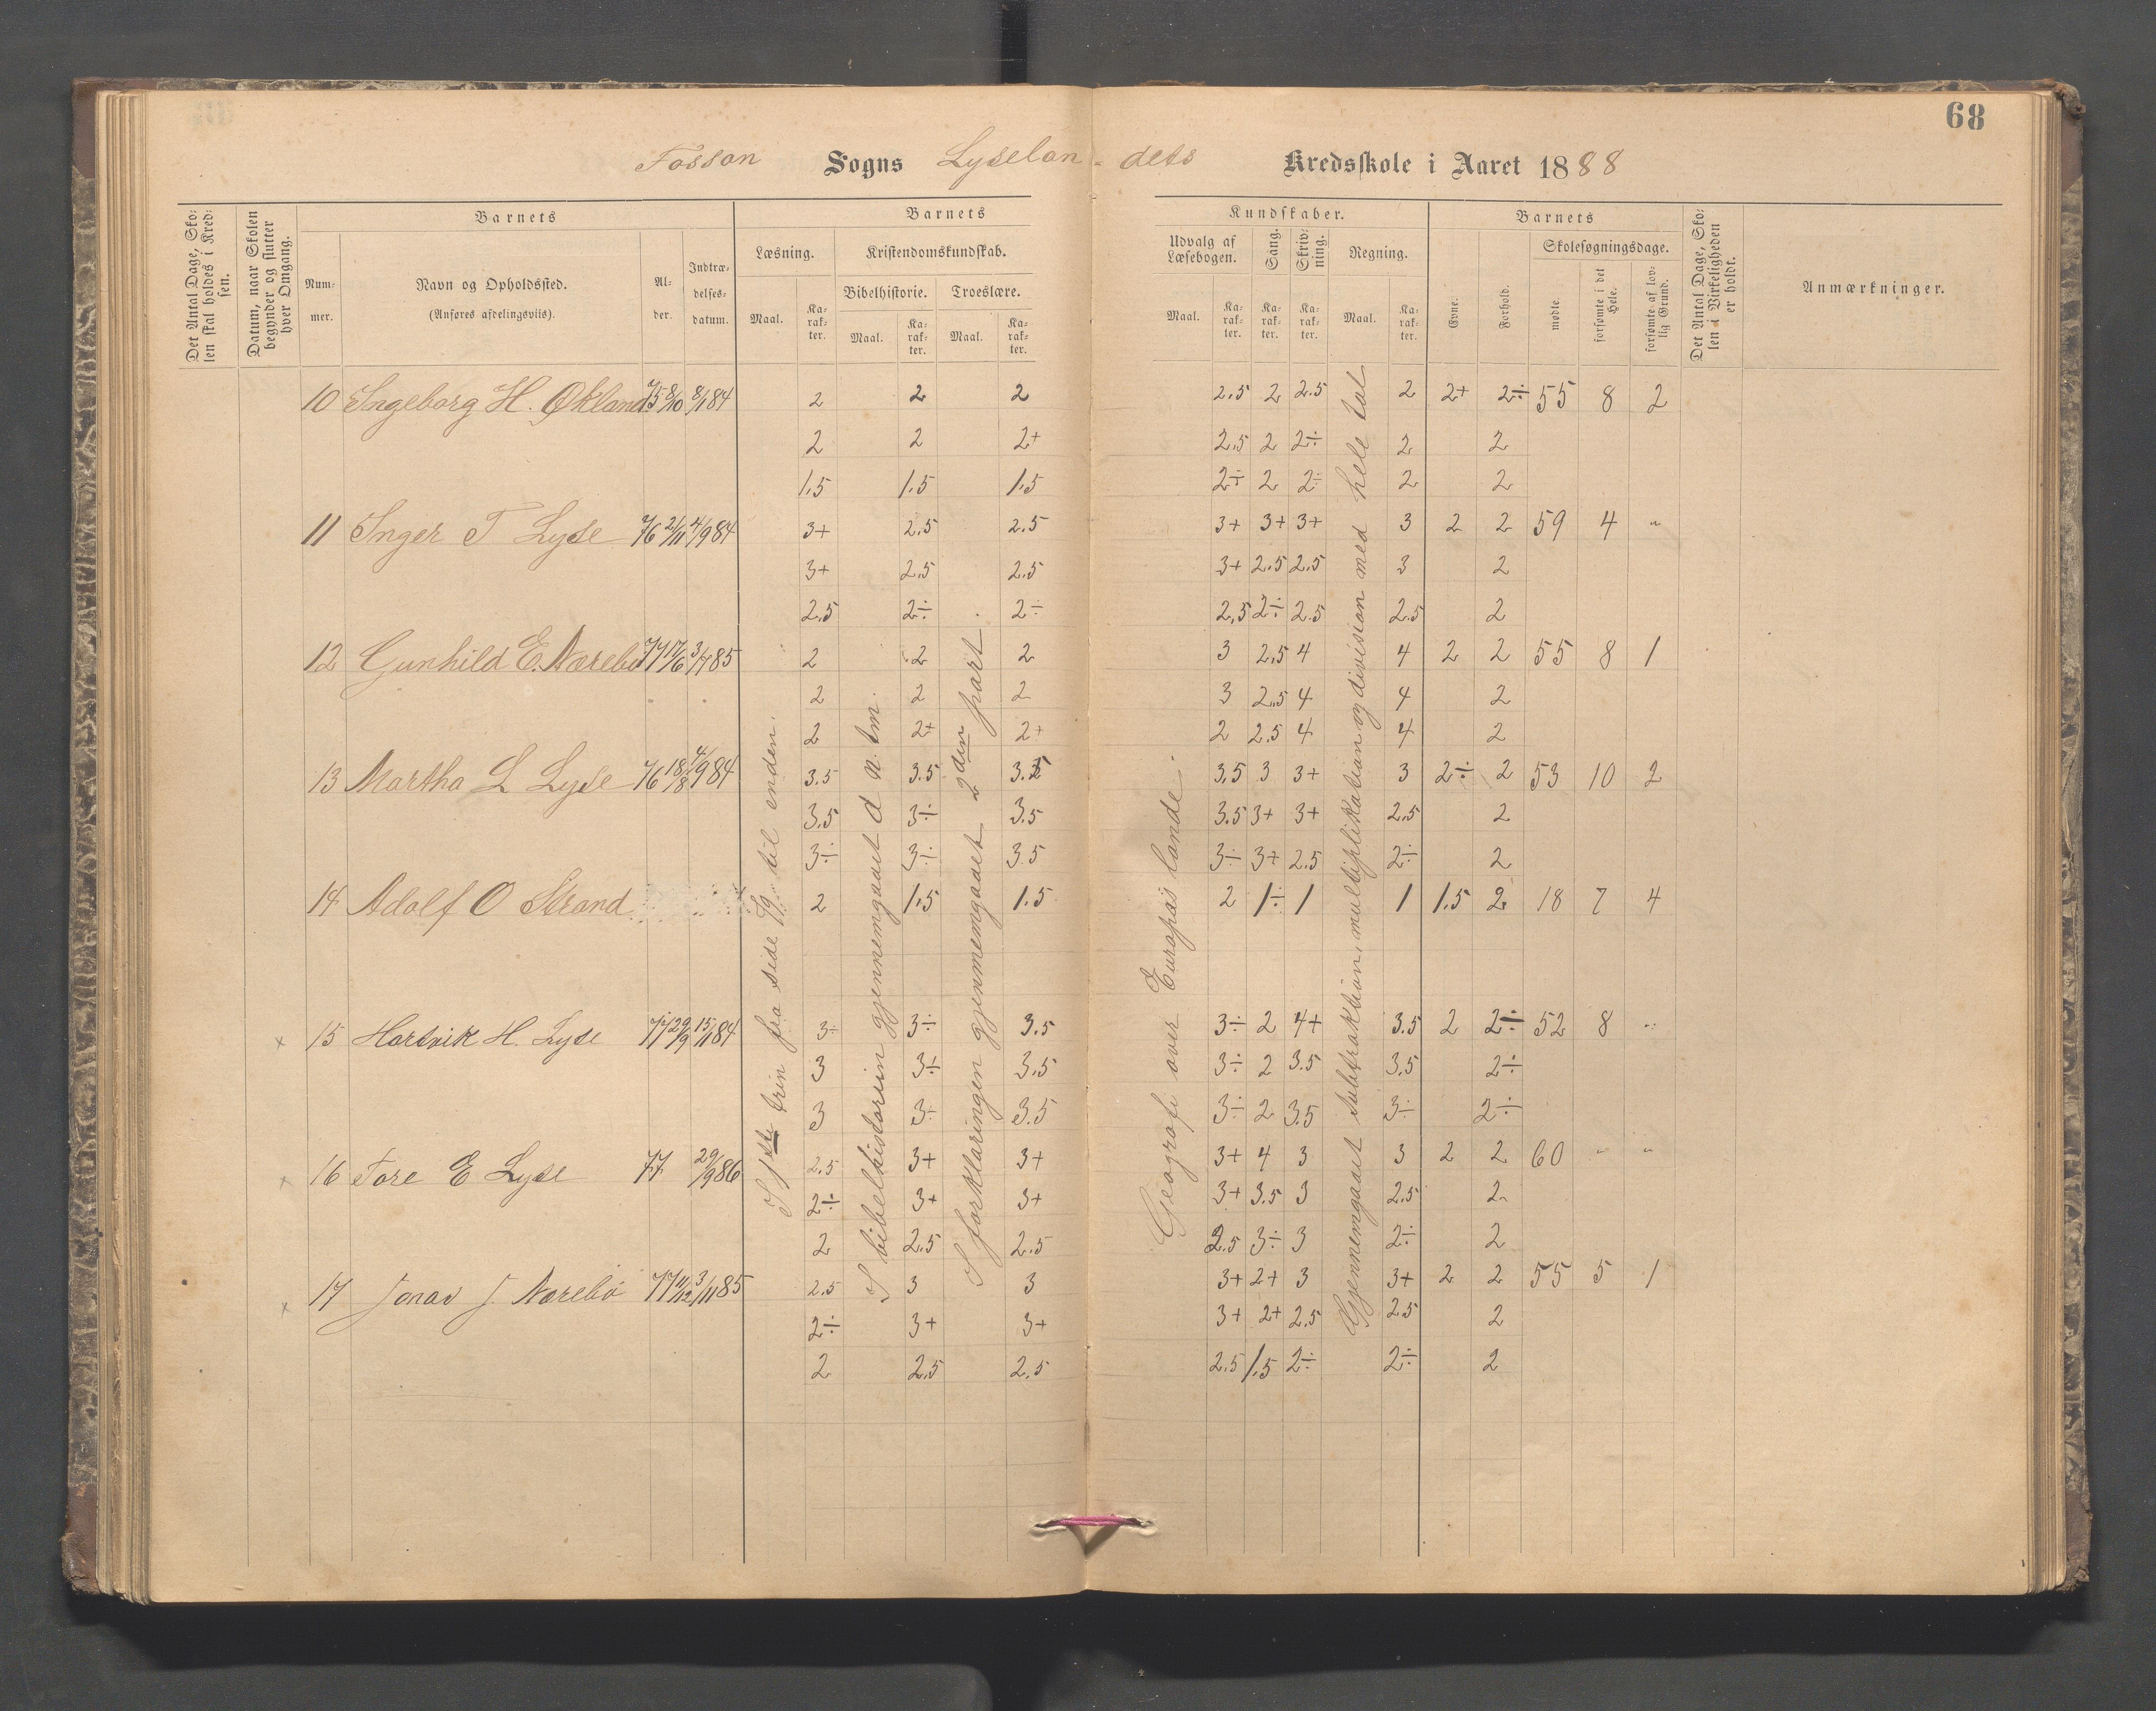 68
Fossan Sogns Lyselan-dets Kredsskole i Aaret 1888
Det Antal Dage, Skolen skal holdes i Kredsen.
Datum, naar Skolen begynder og slutter hver Omgang.
Barnets
Nummer.
Navn og Opholdssted.
(Anføres afdelingsviis).
Alder.
Indtrædelsesdatum.
Barnets Kundskaber.
Læsning.
Maal. Karakter.
Kristendomskundskab.
Bibelhistorie. Troeslære.
Maal. Karakter. Maal. Karakter.
Udvalg af Læsebogen.
Maal. Karakter.
Sang. Karakter.
Skrivning. Karakter.
Regning.
Maal. Karakter.
Barnets
Evne. Forhold.
Skolesøgningsdage.
mødte. forsømte i det Hele. forsømte af lovlig Grund.
Det Antal Dage, Skolen i Virkeligheden er holdt.
Anmærkninger.
10 Ingeborg H. Økland 75 8/10 8/1 84 2 2 2 2.5 2 2.5 2 2+ 2÷ 55 8 2
2 2 2+ 2.5 2 2÷ 2 2
1.5 1.5 1.5 2÷ 2 2÷ 2 2
11 Inger T Lyse 76 2/11 4/9 84 3+ 2.5 2.5 3+ 3+ 3+ 3 2 2 59 4 "
3+ 2.5 2.5 3+ 2.5 2.5 3 2
2.5 2÷ 2÷ 2.5 2÷ 2.5 2.5 2
12 Gunhild E. Nærebø 77 17/6 3/7 85 2 2 2 3 2.5 4 4 2 2 55 8 1
2 2 2 3 2.5 4 4 2
2 2+ 2+ 2 2.5 4 4 2
13 Martha L Lyse 76 18/8 4/9 84 3.5 3.5 3.5 3.5 3 3+ 3 2÷ 2 53 10 2
3.5 3÷ 3.5 3.5 3+ 3+ 2.5 2
3÷ 3÷ 3.5 3÷ 3+ 2.5 2÷ 2
14 Adolf O Strand 2 1.5 1.5 2 1÷ 1 1 1.5 2 18 7 4
x 15 Hartvik H. Lyse 77 29/9 15/1 84 3÷ 3÷ 3.5 3÷ 2 4+ 3.5 2 2÷ 52 8 "
3 3÷ 3.5 3÷ 2 3.5 3.5 2÷
3 3÷ 3.5 3÷ 2 3.5 3÷ 2÷
x 16 Tore E Lyse 77 29/9 86 2.5 3+ 3+ 3+ 4 3 3 2 2 60 " "
2÷ 3+ 3+ 3+ 3.5 3 2.5 2
2 2.5 2.5 2.5 3÷ 3 2÷ 2
x 17 Jonas J. Nærebø 77 11/12 3/11 85 2.5 3 3 3+ 2+ 3 3+ 2 2 55 5 1
2÷ 3+ 3+ 3+ 2+ 2.5 2.5 2
2 2.5 2.5 2.5 1.5 2÷ 2÷ 2
I 1ste trin fra side til enden.
I bibelhistorien gjennemgaaet d n. tm.
I forklaringen gjennemgaaet 2den part
Geografi over Europas lande.
Gjennemgaaet subtraktion, multiplikation og division med hele tal